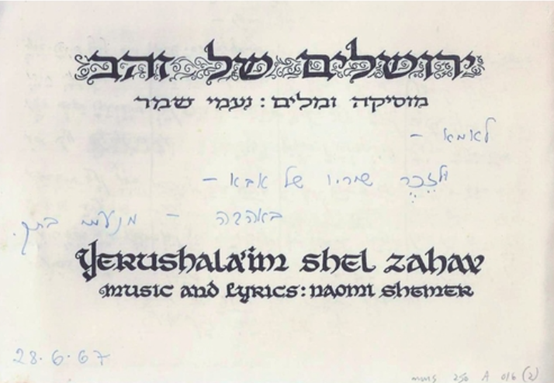 ירושלים של זהב
מוסיקה ומלים: נעמי שמר
לאמא –
של אבא –
באהבה – מנעמי בתך.
Yerushala'im shel zahav
Music and Lyrics: Naomi Shemer
28.6.67
MUS 250 A 016 (2)